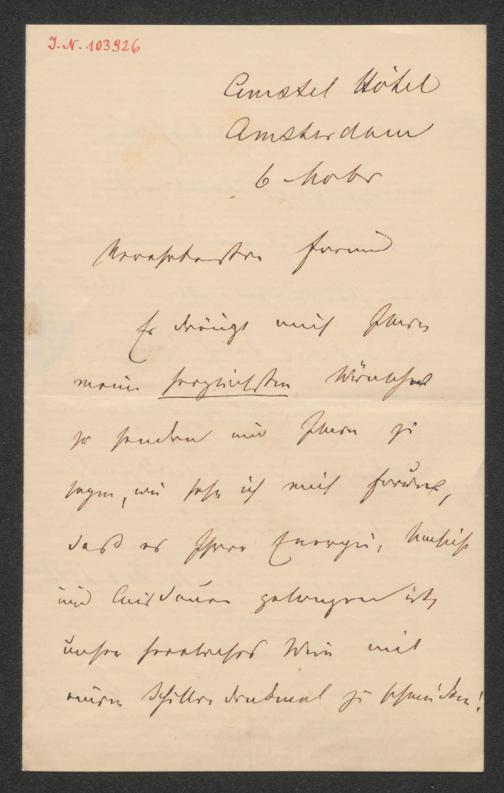 J.N. 103926
Amstel Hôtel
Amsterdam
6 Novbr
Verehrtester Freund
Es drängt mich Ihnen
meine herzlichsten Wünsche
zu senden und Ihnen zu
sagen, wie sehr ich mich freue,
daß es Ihrer Energie, Umsicht
und Ausdauer gelungen ist,
unser herrliches Wien mit
einem Schillerdenkmal zu schmücken!